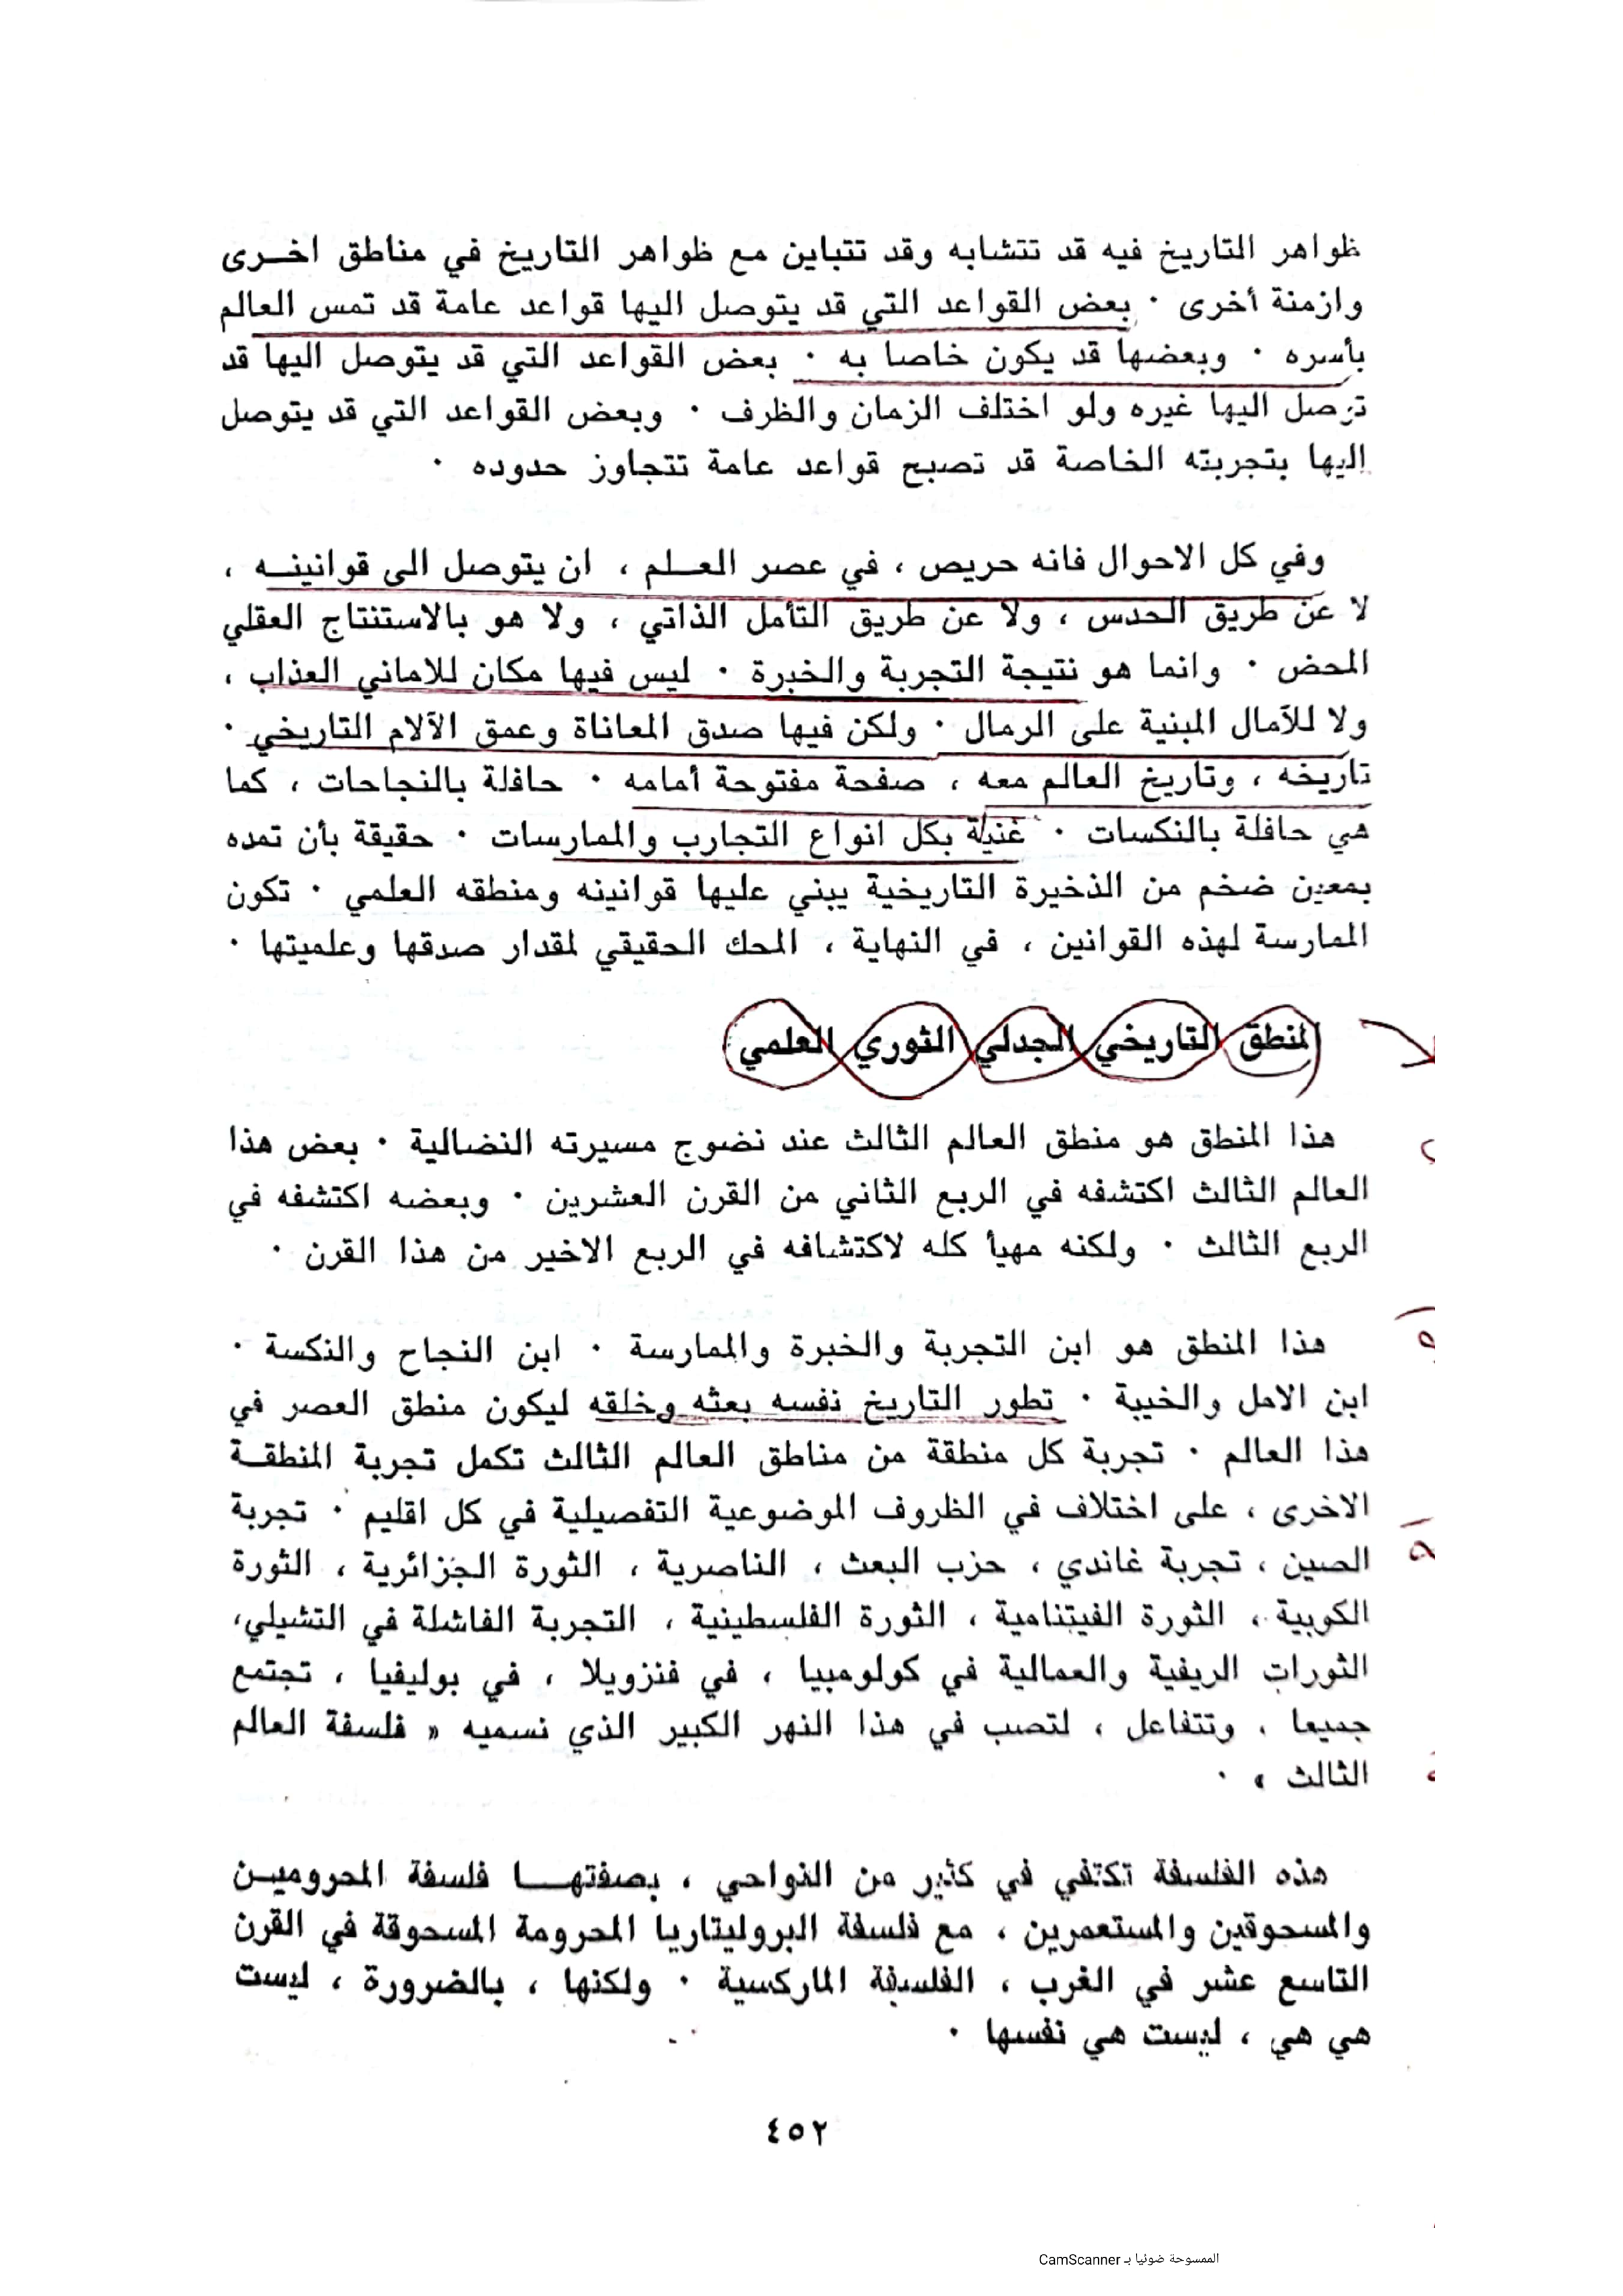 ظواهر التاريخ فيه قد تتشابه وقد تتباين مع ظواهر التاريخ في مناطق اخـرى
وازمنة أخرى · بعض القواعد التي قد يتوصل اليها قواعد عامة قد تمس العالم
بأسره · وبعضها قد يكون خاصا به · بعض القواعد التي قد يتوصل اليها قد
توصل اليها غيره ولو اختلف الزمان والظرف · وبعض القواعد التي قد يتوصل
اليها بتجربته الخاصة قد تصبح قواعد عامة تتجاوز حدوده ·
وفي كل الاحوال فانه حريص ، في عصر العـلم ، ان يتوصل الى قوانينـه ،
لا عن طريق الحدس ، ولا عن طريق التأمل الذاتي ، ولا هو بالاستنتاج العقلي
المحض · وانما هو نتيجة التجربة والخبرة · ليس فيها مكان للاماني العذاب ،
ولا للآمال المبنية على الرمال · ولكن فيها صدق المعاناة وعمق الآلام التاريخي ·
تاريخه ، وتاريخ العالم معه ، صفحة مفتوحة أمامه · حافلة بالنجاحات ، كما
هي حافلة بالنكسات · غنية بكل انواع التجارب والممارسات · حقيقة بأن تمده
بمعين ضخم من الذخيرة التاريخية يبني عليها قوانينه ومنطقه العلمي · تكون
الممارسة لهذه القوانين ، في النهاية ، المحك الحقيقي لمقدار صدقها وعلميتها ·
المنطق التاريخي الجدلي الثوري العلمي
هذا المنطق هو منطق العالم الثالث عند نضوج مسيرته النضالية · بعض هذا
العالم الثالث اكتشفه في الربع الثاني من القرن العشرين · وبعضه اكتشفه في
الربع الثالث · ولكنه مهيأ كله لاكتشافه في الربع الاخير من هذا القرن ·
هذا المنطق هو ابن التجربة والخبرة والممارسة · ابن النجاح والنكسة ·
ابن الامل والخيبة · تطور التاريخ نفسه بعثه وخلقه ليكون منطق العصر في
هذا العالم · تجربة كل منطقة من مناطق العالم الثالث تكمل تجربة المنطقـة
الاخرى ، على اختلاف في الظروف الموضوعية التفصيلية في كل اقليم · تجربة
الصين ، تجربة غاندي ، حزب البعث ، الناصرية ، الثورة الجزائرية ، الثورة
الكوبية ، الثورة الفيتنامية ، الثورة الفلسطينية ، التجربة الفاشلة في التشيلي،
الثورات الريفية والعمالية في كولومبيا ، في فنزويلا ، في بوليفيا ، تجتمع
جميعا ، وتتفاعل ، لتصب في هذا النهر الكبير الذي نسميه « فلسفة العالم
الثالث » ·
هذه الفلسفة تكتفي في كثير من النواحي ، بصفتهـا فلسفة المحروميـن
والمسحوقين والمستعمرين ، مع فلسفة البروليتاريا المحرومة المسحوقة في القرن
التاسع عشر في الغرب ، الفلسفة الماركسية · ولكنها ، بالضرورة ، ليست
هي هي ، ليست هي نفسها ·
٤٥٢
الممسوحة ضوئيا بـ CamScanner